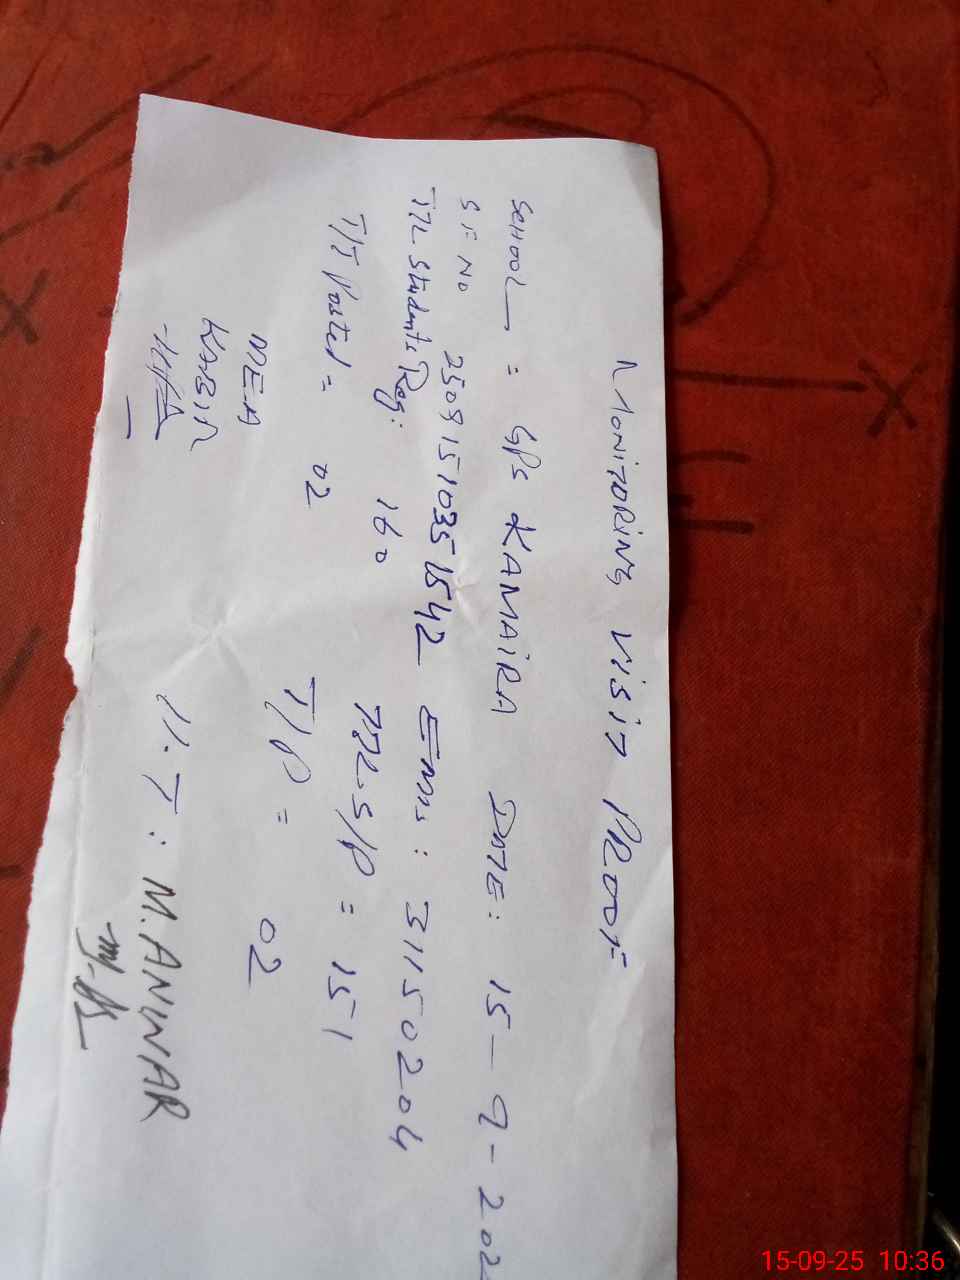 MONITORING VISIT PROOF
SCHOOL = GPS KAMAIRA DATE: 15-9-202
S I NO 25091510351542 Emis: 31150204
TTL Students Reg: 160 TTL S/P = 151
T/T Posted = 02 T/P = 02
MEA
KABIR
H.T: M.ANWAR
15-09-25 10:36